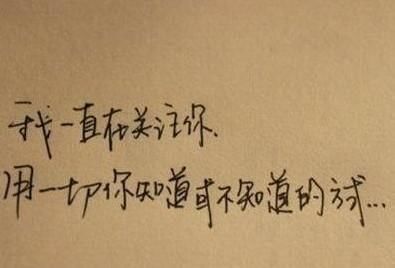 我一直在关注你.
用一切你知道或不知道的方式...